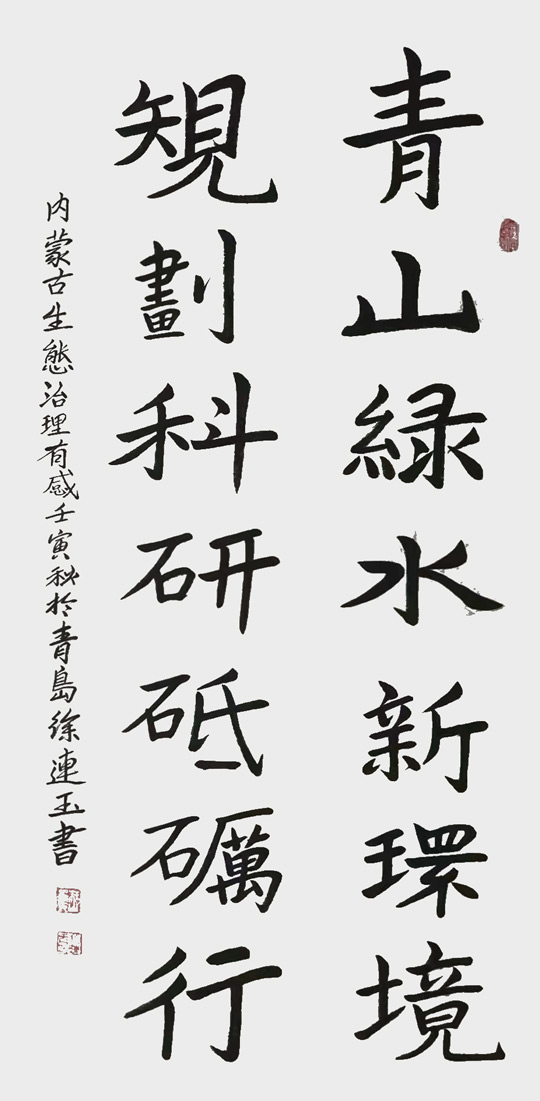 青山緑水新環境
規劃科研砥礪行
内蒙古生態治理有感壬寅秋於青島徐連玉書